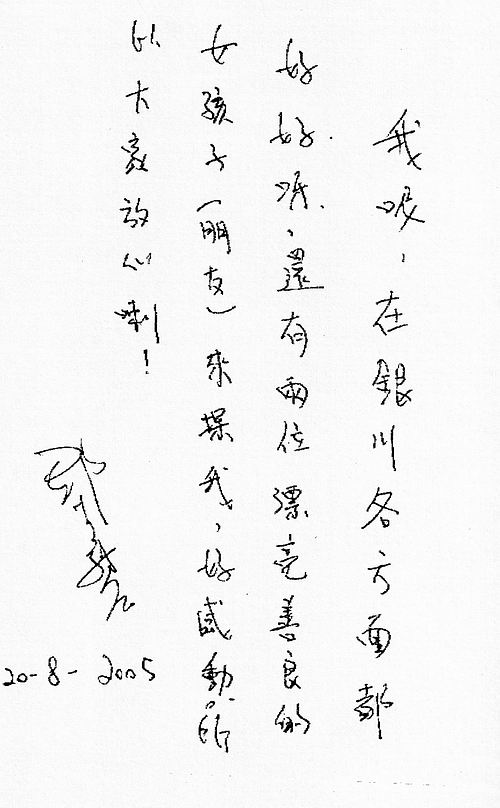 我呢，在銀川各方面都
好好.好嘢.，還有兩位漂亮善良的
女孩子（朋友）來探我，好感動。所
以大家放心喇！
20-8-2005